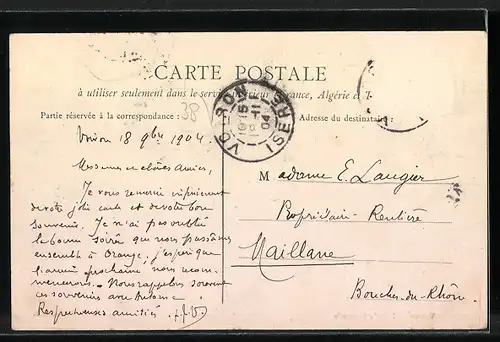 CARTE POSTALE
à utiliser seulement dans le service intérieur France, Algérie et T
Partie réservée à la correspondance :
38
Adresse du destinataire :
VOIRON
ISERE
18-11
04
Voiron 18 9bre 1904
Messieurs et chères Amies,
Je vous remercie infiniment
de votre jolie carte et de votre bon
souvenir. Je n'ai pas oublié
la bonne soirée que nous passâmes
ensemble à Orange, j'espère que
l'année prochaine nous recom-
mencerons. Nous rappelons souvent
ces souvenirs avec
Respectueuses amitiés
Madame E. Laugier
Propriétaire-Rentière
Maillane
Bouches-du-Rhône